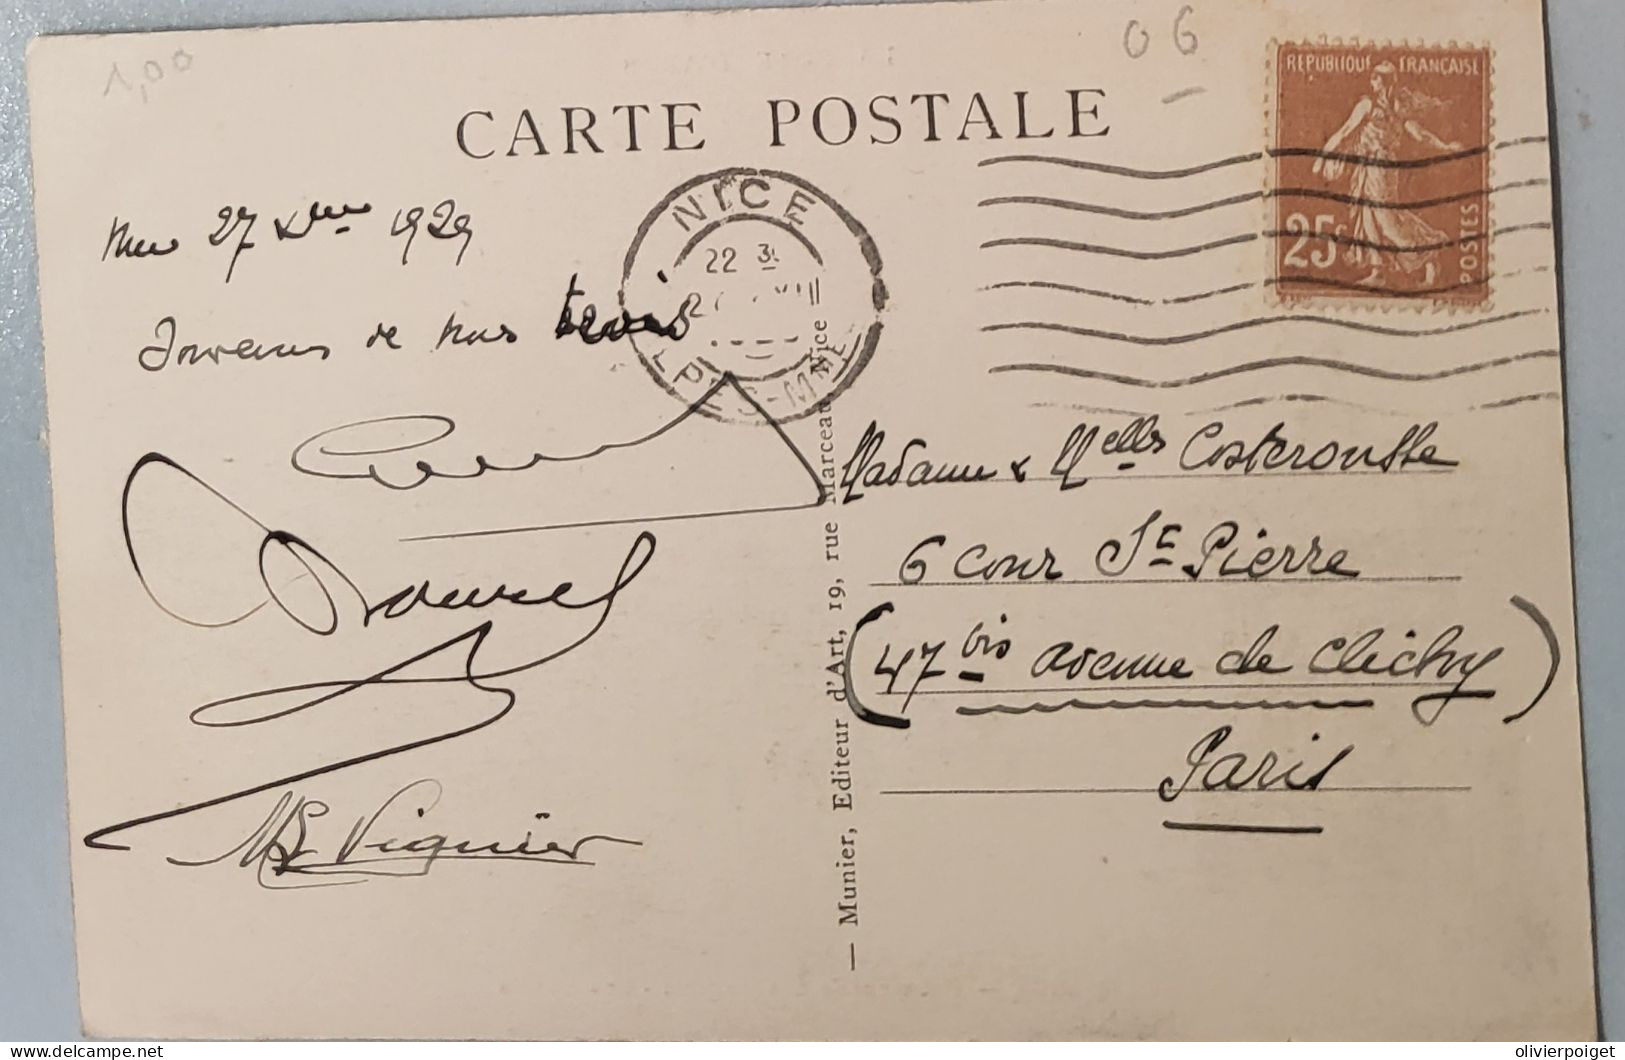 1,00
06
CARTE POSTALE
REPUBLIQUE FRANÇAISE
25c
POSTES
NICE
22 3
ALPES-MMES
27 Xbre 1929
Souvenir de nous trois
M L Vignier
Madame & Melles Costerousse
6 Cour St Pierre
(47 bis avenue de Clichy)
Paris
— Munier, Editeur d'Art, 19, rue Marceau, Nice
olivierpoiget